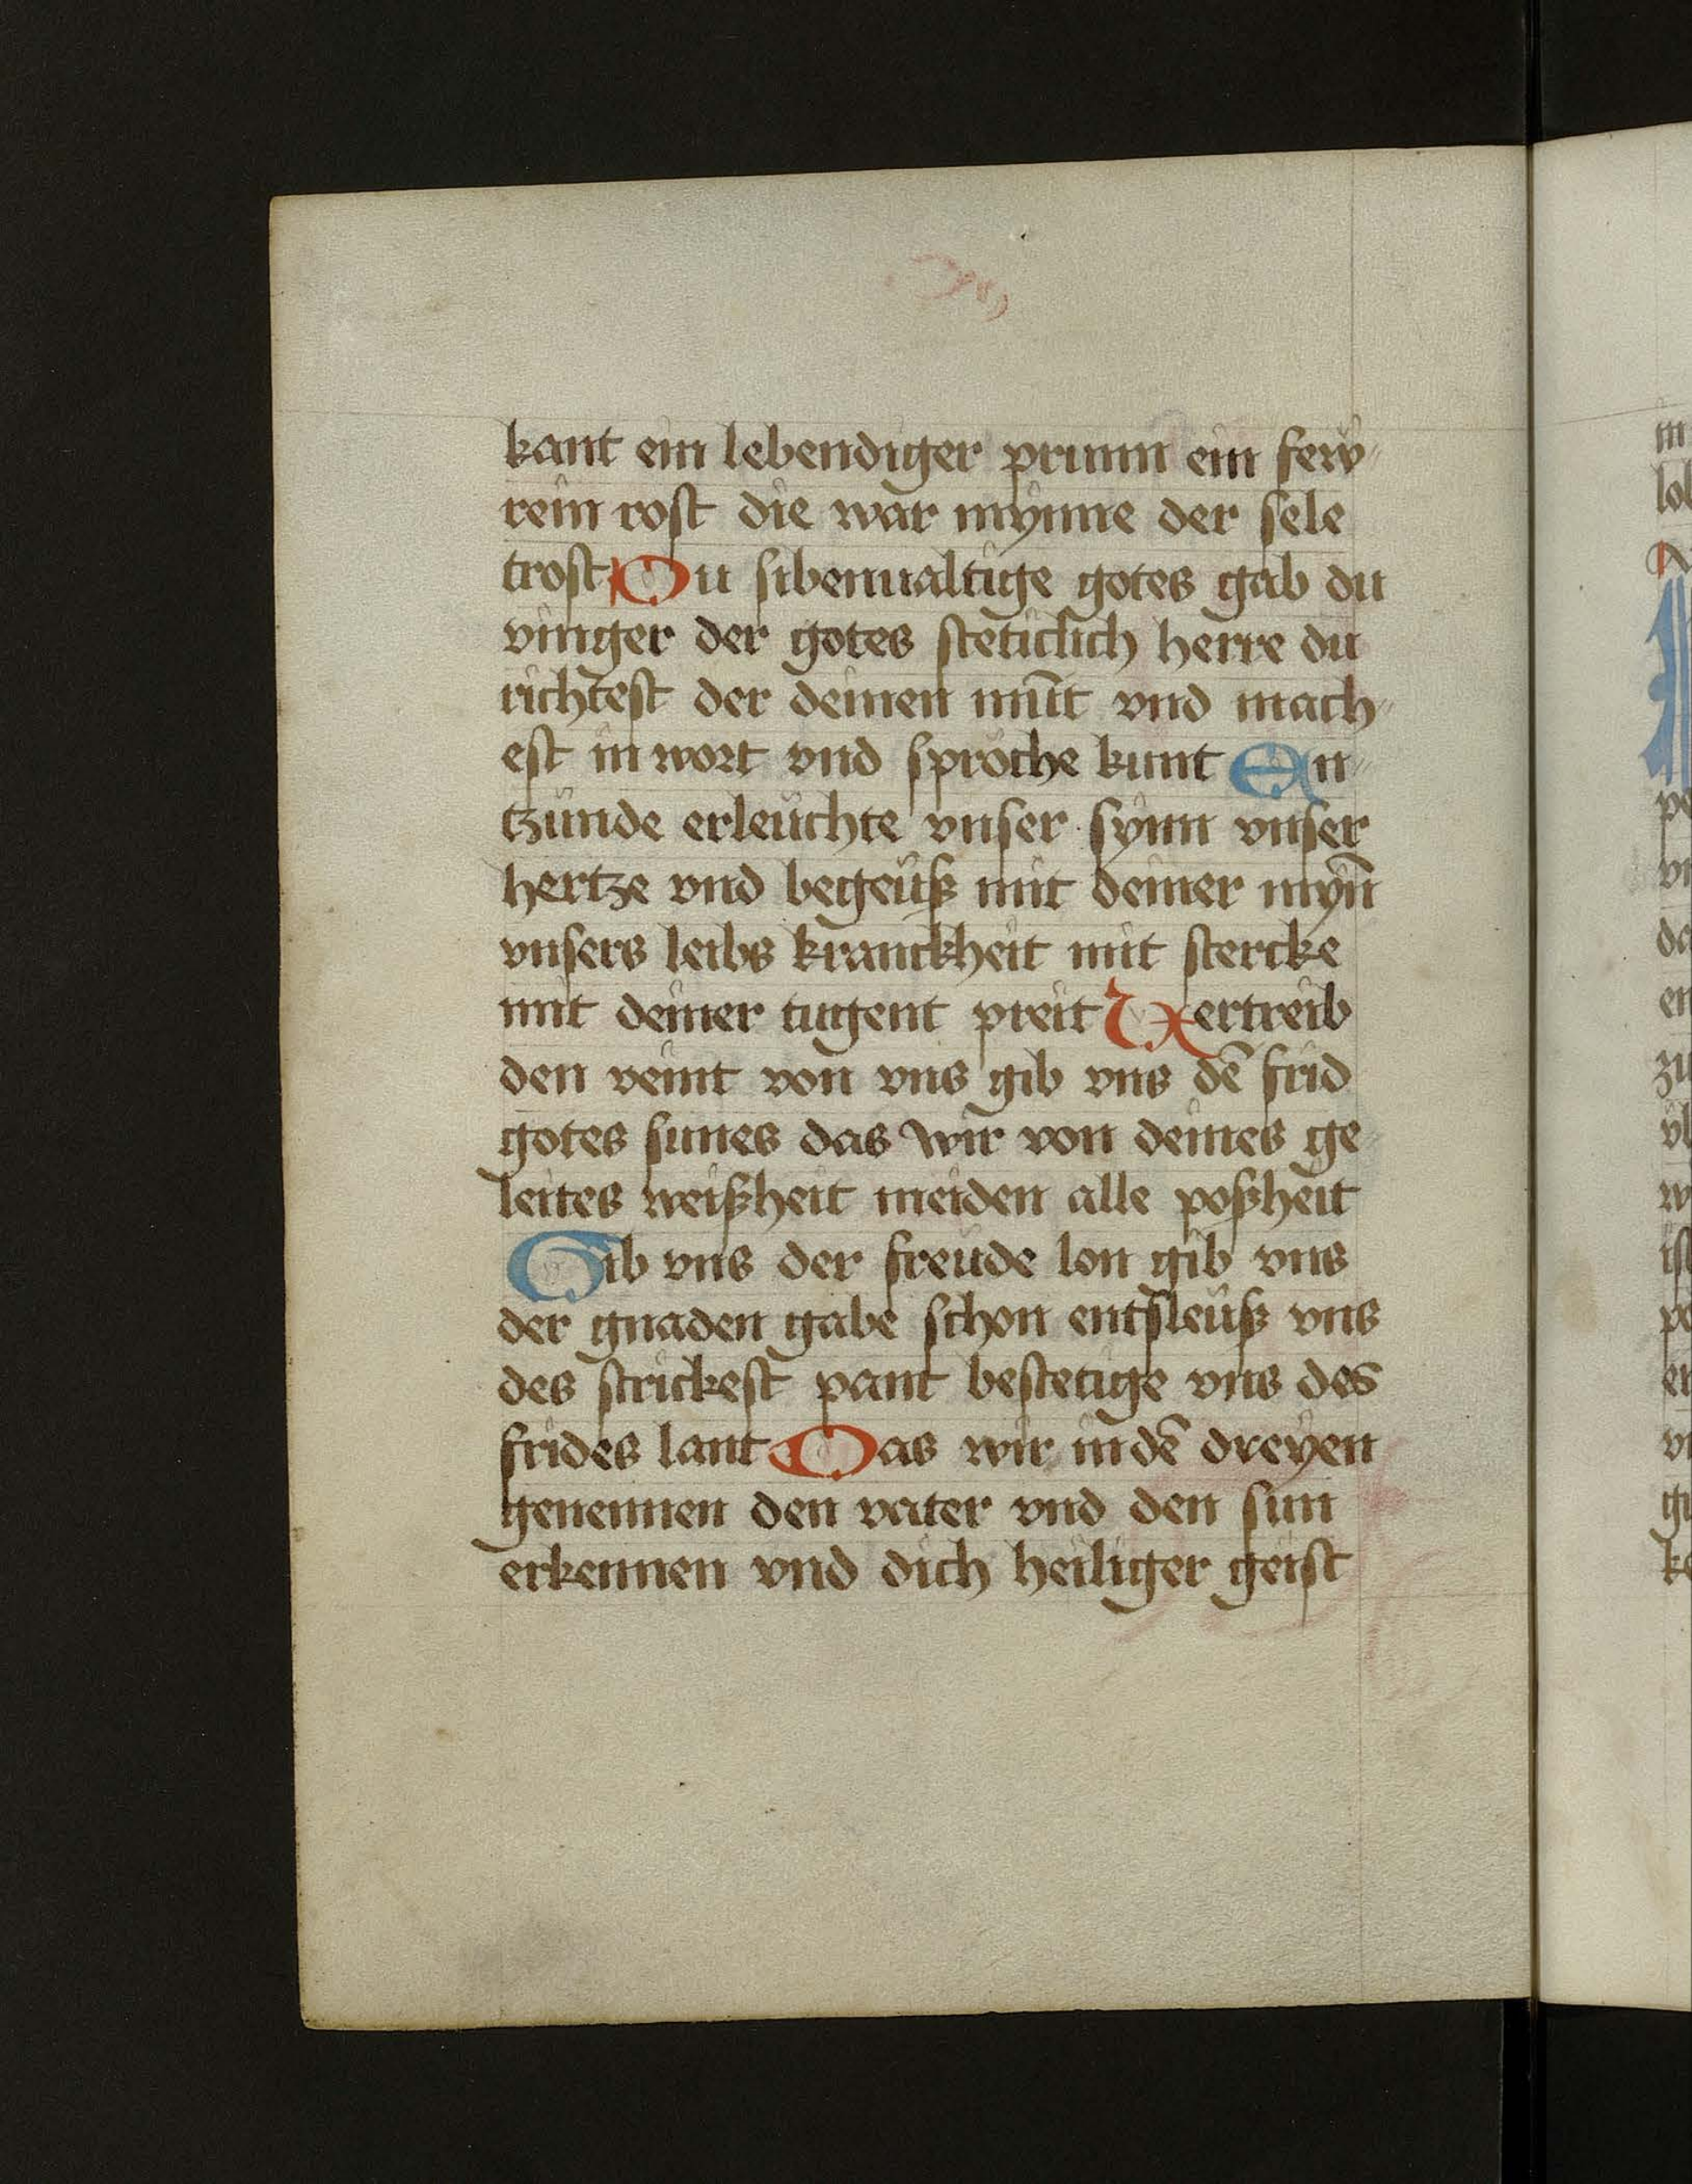 kant ein lebendiger prunn ein few"
rein rost die war mynne der sele
trost Du sibenualtige gotes gab du
vinger der gotes steticlich herre du
richtest der deinen mūt vnd mach"
est in wort vnd sproche kunt En"
tzünde erleüchte vnser synn vnser
hertze vnd begeüß mit deiner myn̄
vnsers leibs kranckheit mit stercke
mit deiner tugent preit Vertreib
den veint von vns gib vns dē frid
gotes sunes das wir von deines ge
leites weißheit meiden alle poßheit
Gib vns der freude lon gib vns
der gnaden gabe schon entsleüß vns
des strickest pant bestetige vns des
frides lant Das wir in dē dreyen
genennen den vater vnd den sun
erkennen vnd dich heiliger geist